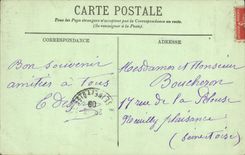 CARTE POSTALE
Tous les Pays étrangers n'acceptent pas la Correspondance au verso.
(Se renseigner à la Poste)
CORRESPONDANCE
ADRESSE
Bon souvenir
amitiés à tous
Mesdames et Monsieur
Boucheron
17 rue de la
Neuilly plaisance
(Seine et oise)